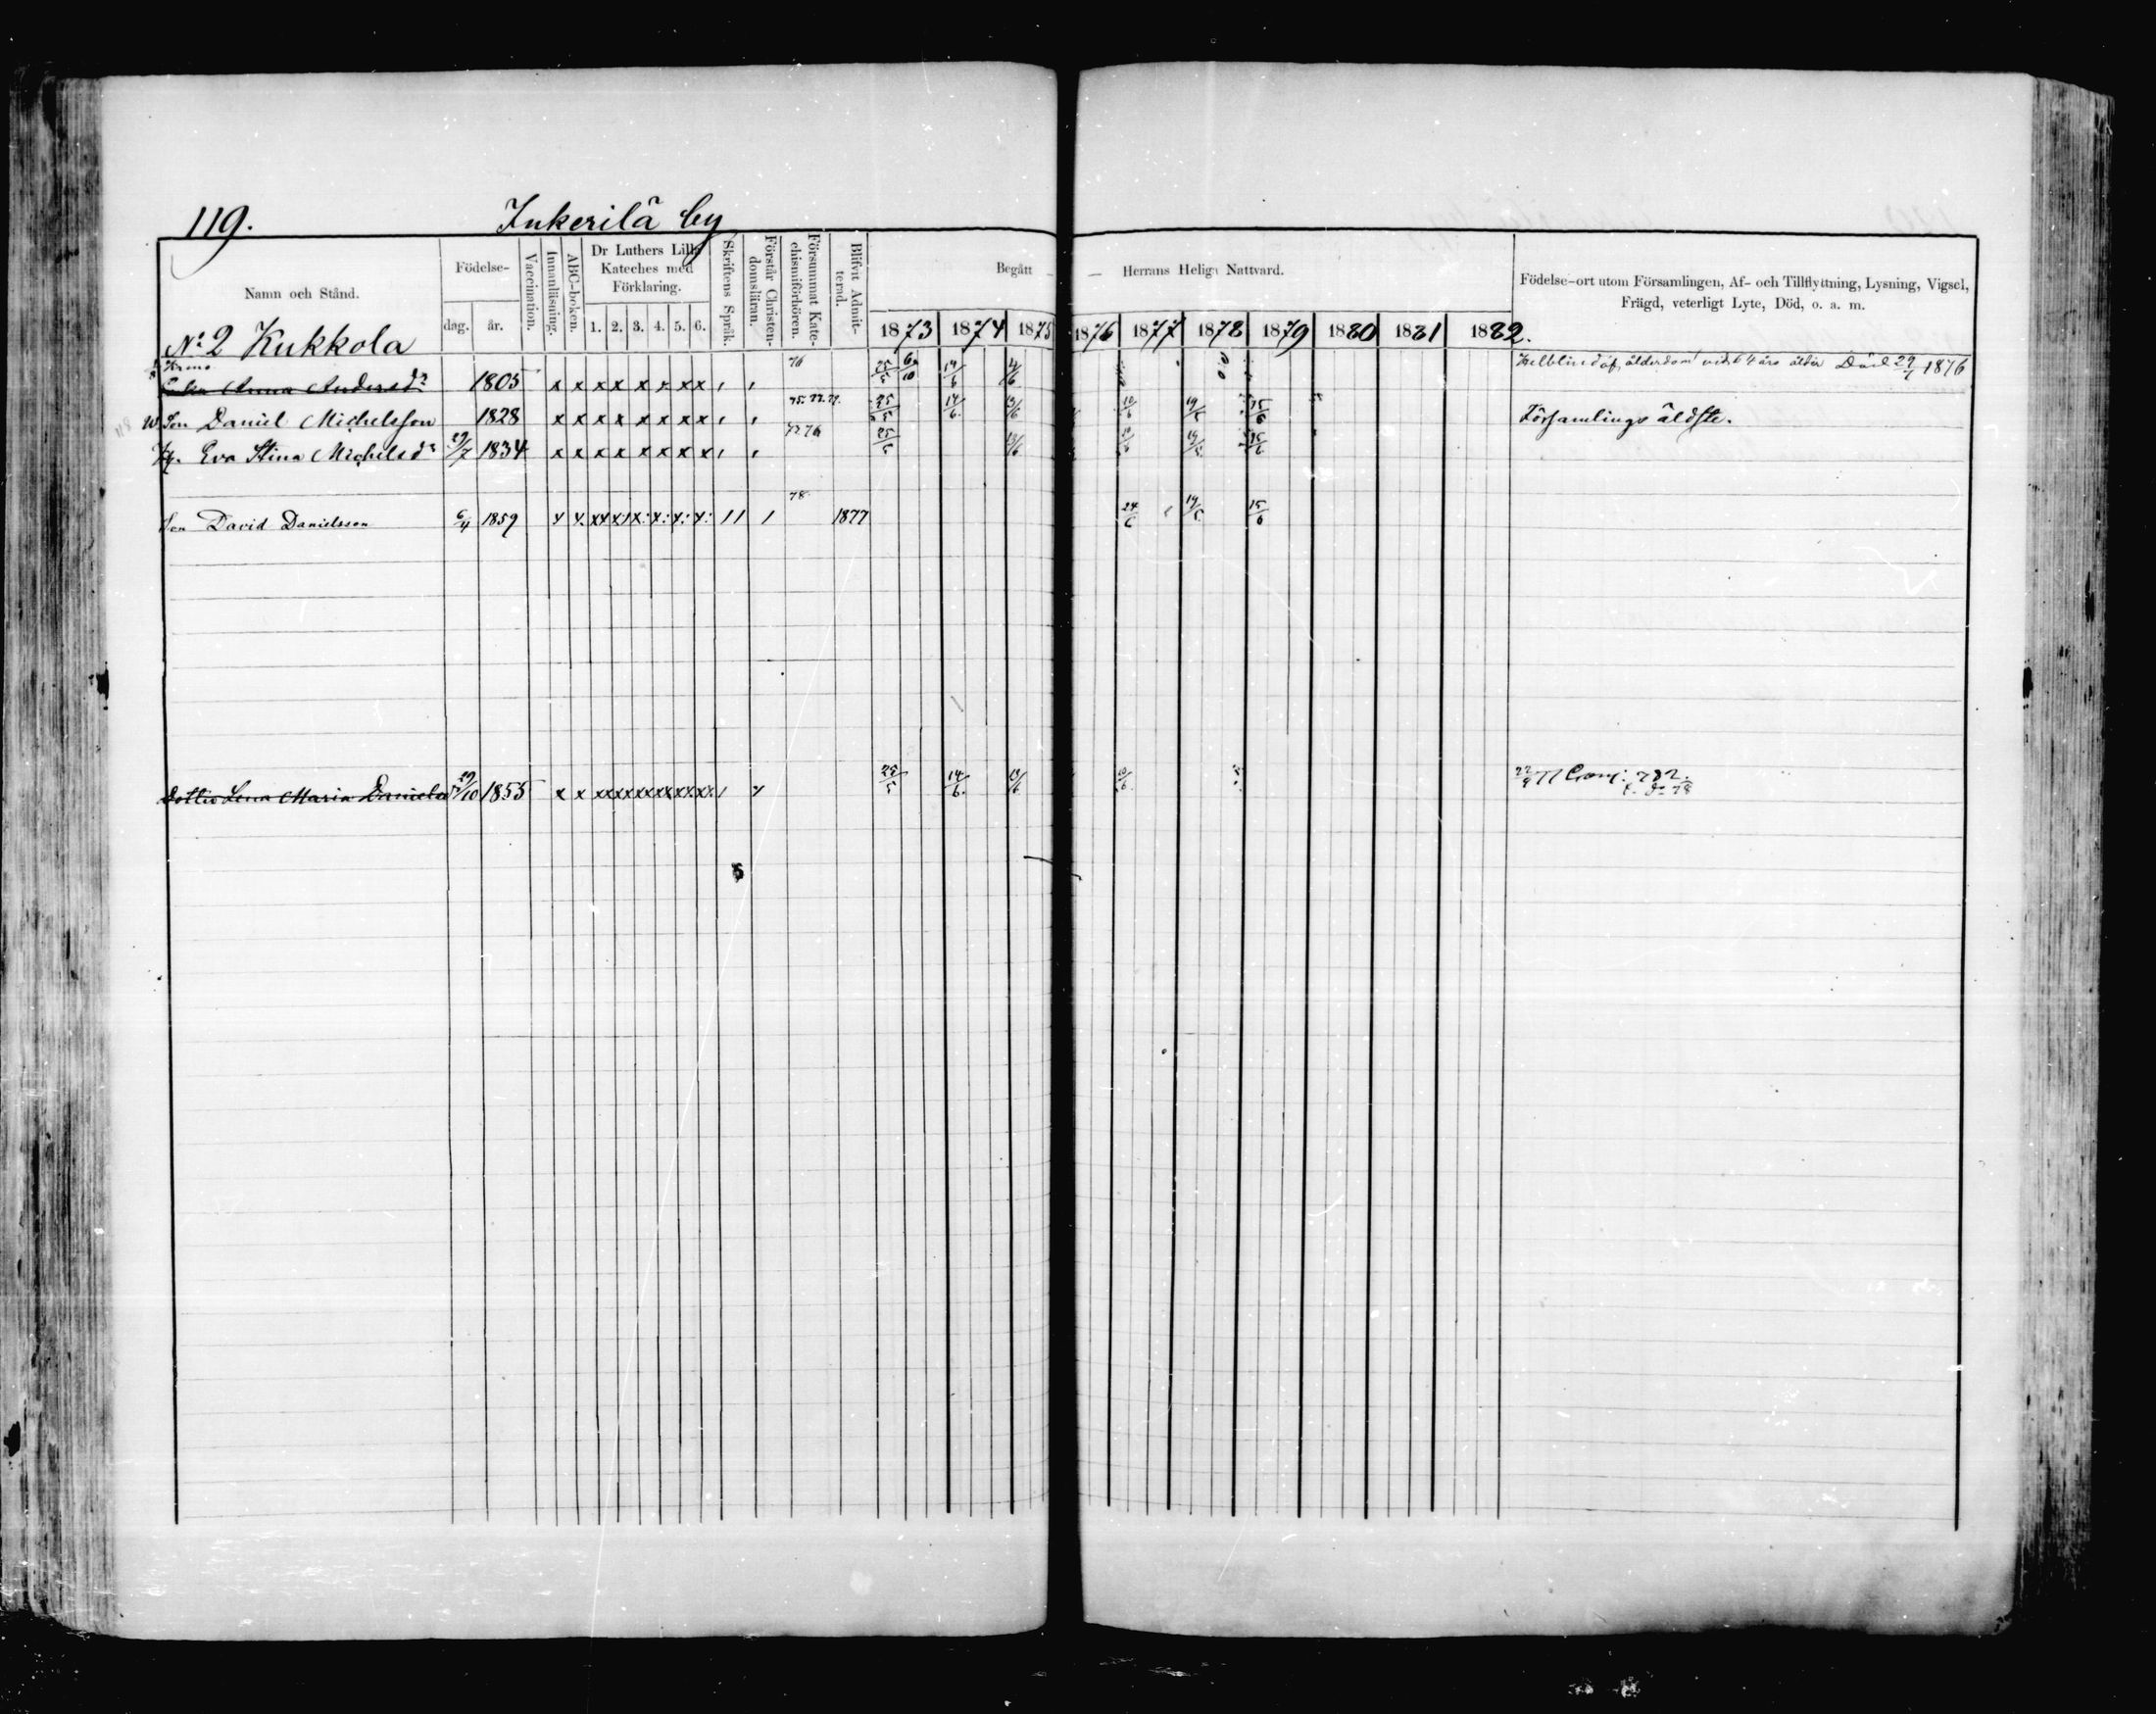 119. Inkerilä by
Namn och Stånd. Födelse- dag. år. Vaccination. Innanläsning. ABC-boken. Dr Luthers Lilla Kateches med Förklaring. 1. 2. 3. 4. 5. 6. Skriftens Språk. Förstår Christendomsläran. Försummat Katechismiförhören. Blifvit Admitterad. Begått — — Herrans Helige Nattvard. Födelse-ort utom Församlingen, Af- och Tillflyttning, Lysning, Vigsel, Frägd, veterligt Lyte, Död, o. a. m.
1873 1874 1875 1876 1877 1878 1879 1880 1881 1882.
No 2 Kukkola
Anna Andersdr 1805 x x x x x x x x 76 25/5 6/10 14/6 Helblind af ålderdom vid 64 års ålder Död 29/7 1876
Son Daniel Michelsson 1828 x x x x x x x x 75. 77. 79. 25/5 14/6 13/6 10/6 19/5 15/6 Församlings äldste.
H. Eva Stina Michelsdr 29/7 1834 x x x x x x x x 72 76 25/5 13/6 10/6 19/5 15/6
Son David Danielsson 6/4 1859 78 1877 24/6 19/5 15/6
Dotter Lena Maria Danielsd 29/10 1855 x x xx xx xx xx xx xx 25/5 14/6 13/6 10/6 22/9 77